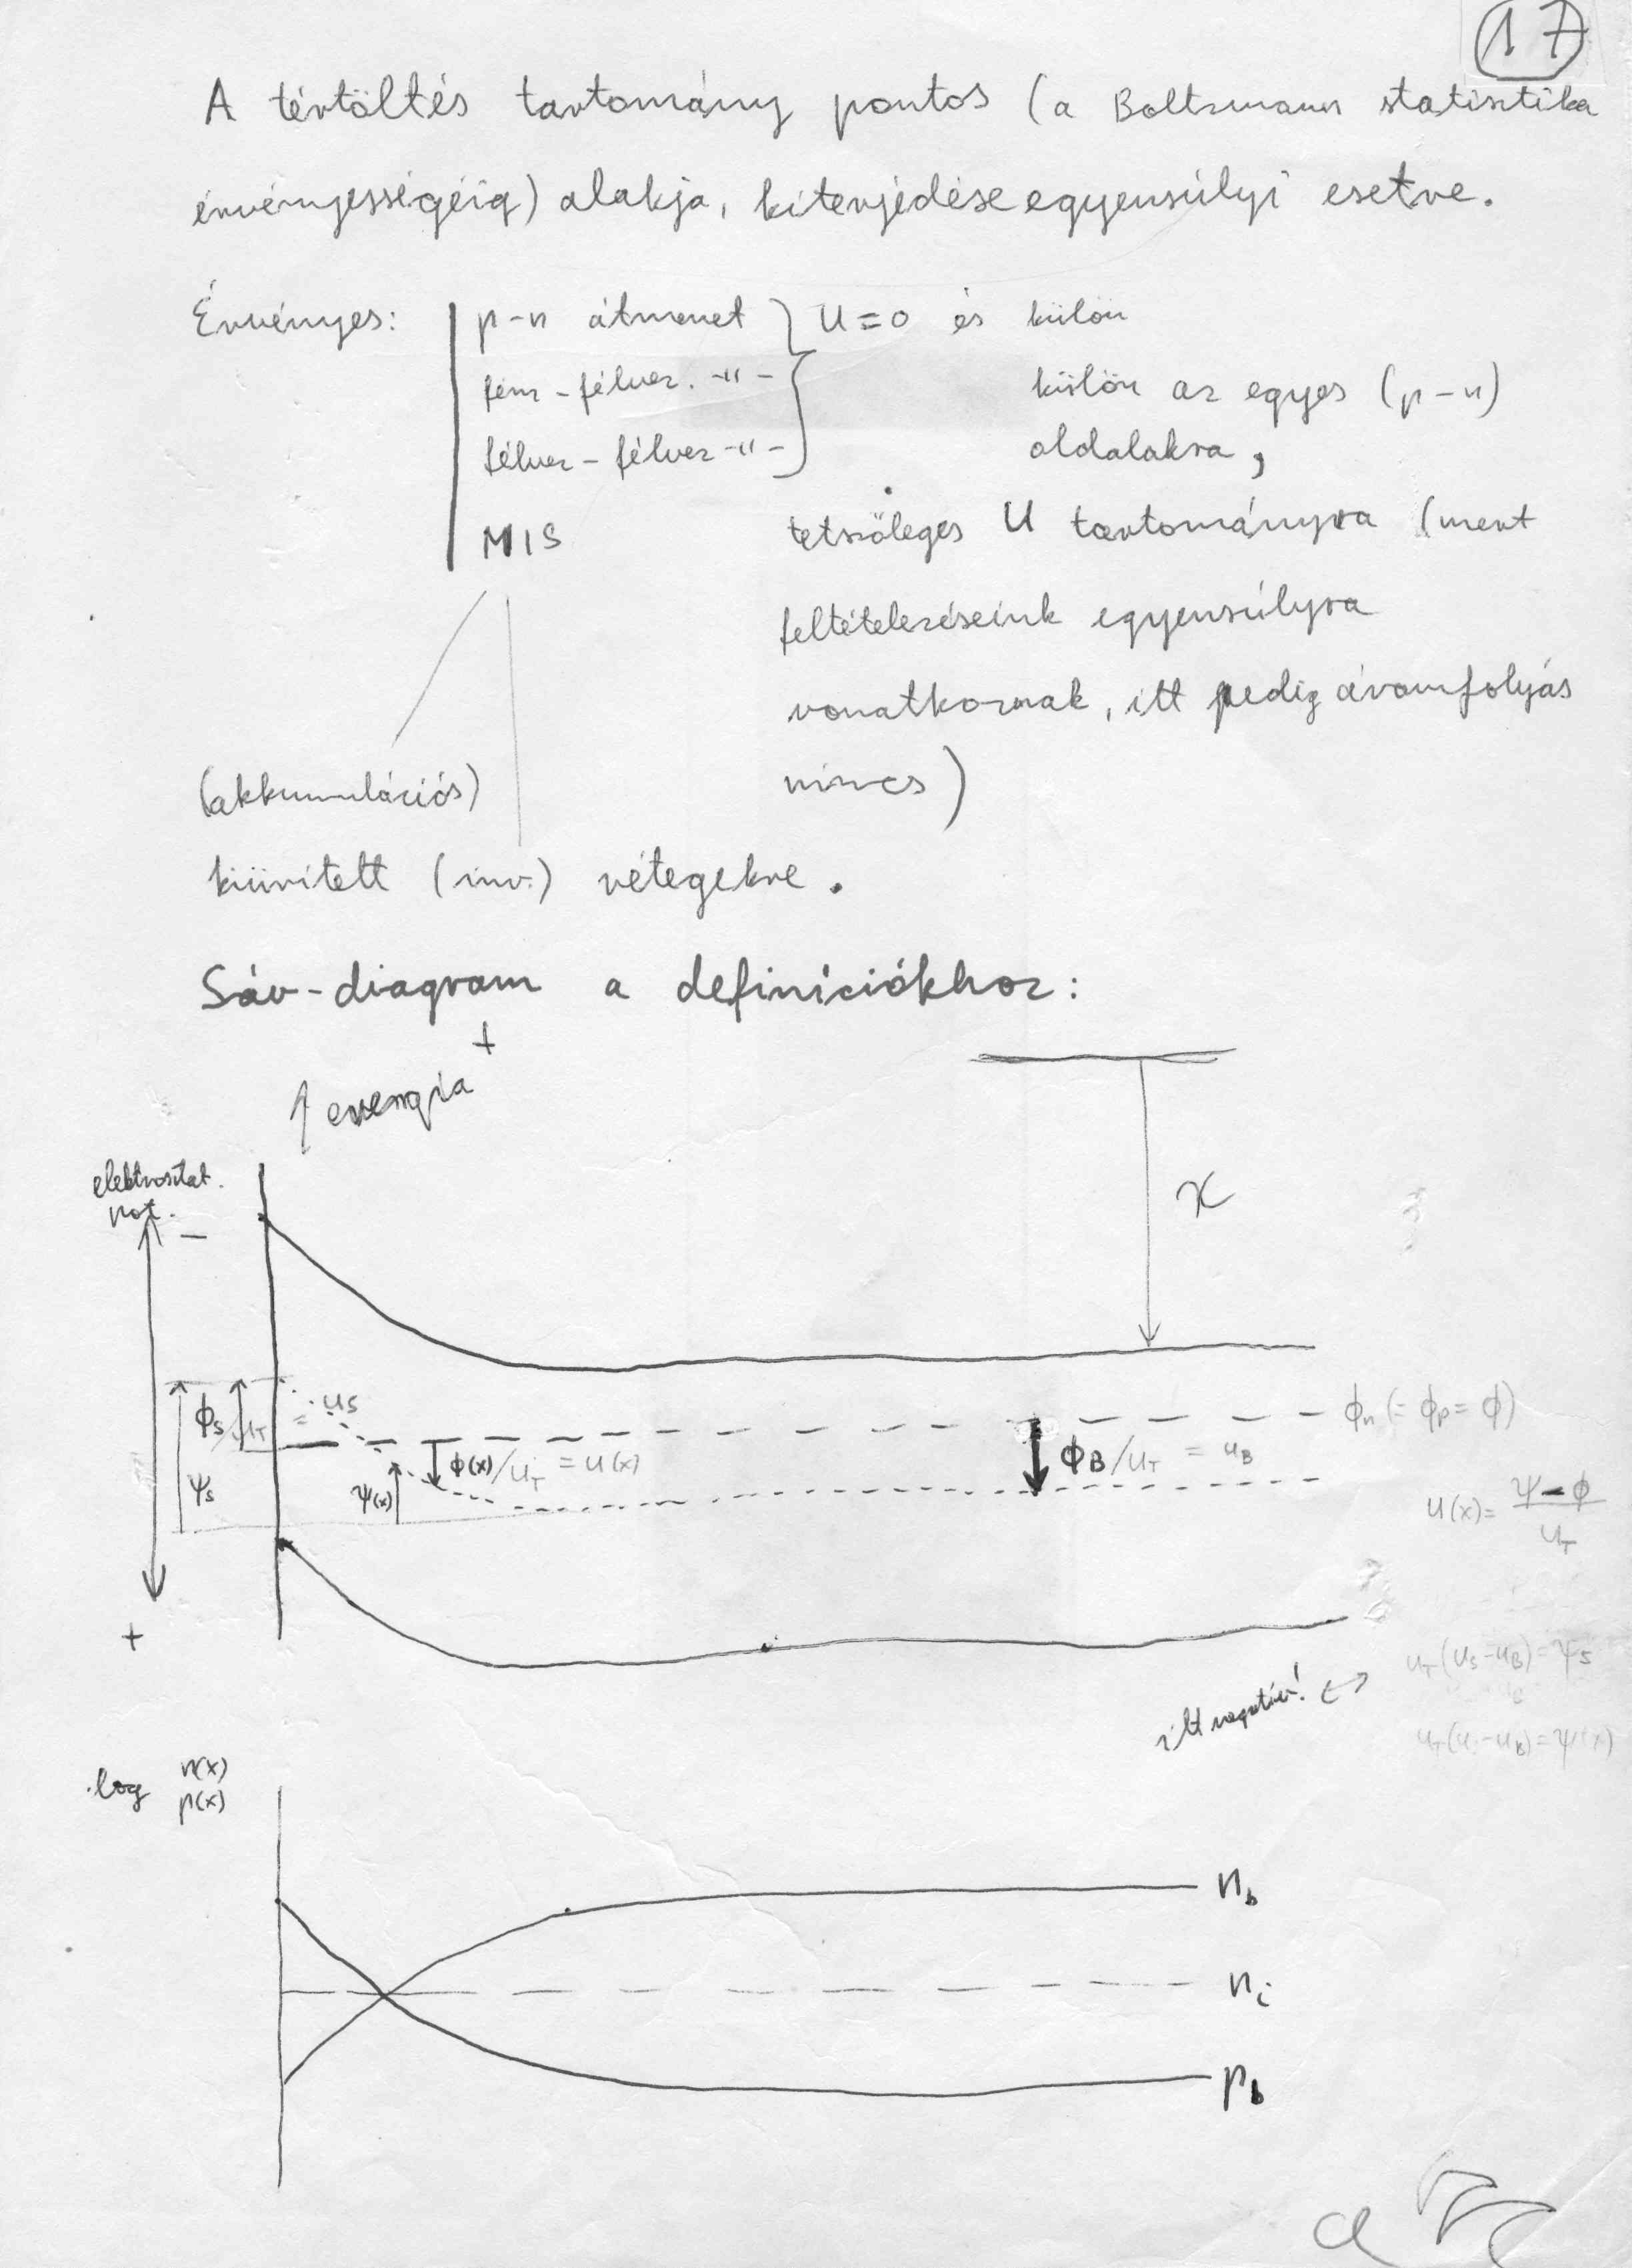 17
A tértöltés tartomány pontos (a Boltzmann statisztika
érvényességéig) alakja, kiterjedése egyensúlyi esetre.
Érvényes: p-n átmenet U=0 és külön
fém-félvez. -"- külön az egyes (p-n)
félvez-félvez -"- oldalakra,
MIS tetszőleges U tartományra (mert
feltételezéseink egyensúlyra
vonatkoznak, itt pedig áramfolyás
(akkumulációs) nincs)
kiürített (inv.) rétegekre.
Sáv-diagram a definíciókhoz:
+
energia
elektrosztat.
pot.
−
χ
ϕs/uT = us
ϕn (= ϕp = ϕ)
ϕ(x)/uT = u(x)
ϕB/uT = uB
ψs
ψ(x)
u(x) = (ψ − ϕ)/uT
+
uT(us-uB)=ψs
itt negatív! ↔
uT(u-uB)=ψ(x)
log n(x)
p(x)
nb
ni
pb